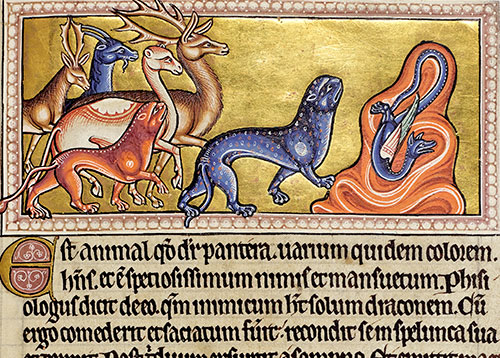 Est animal qd̄ dr̄ pantera. uarium quidem colorem.
h̄ns. et ē speciosissimum nimis et mansuetum. Phisi
ologus dicit de eo. qm̄ inimicum h̄t solum draconem. Cū
ergo comederit et saciatum fuīt: recondit se in spelunca sua